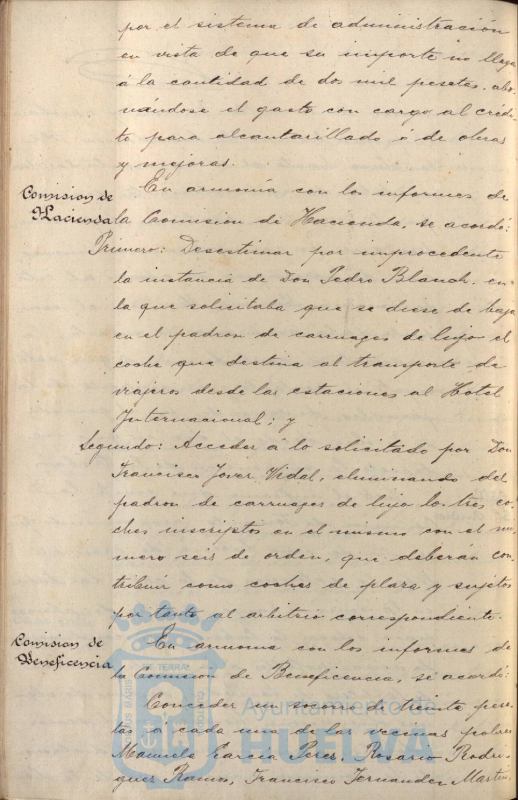 por el sistema de administración
en vista de que su importe no llega
á la cantidad de dos mil pesetas, abo-
nándose el gasto con cargo al crédi-
to para alcantarillado ó de obras
y mejoras.
Comision de
Hacienda
En armonía con los informes de
la Comision de Hacienda, se acordó:
Primero: Desestimar por improcedente
la instancia de Don Pedro Blanch, en
la que solicitaba que se diese de baja
en el padron de carruages de lujo el
coche que destina al transporte de
viajeros desde las estaciones al Hotel
Internacional; y
Segundo: Acceder á lo solicitado por Don
Francisco Jover Vidal, eliminando del
padron de carruages de lujo los tres co-
ches inscriptos en el mismo con el nú-
mero seis de orden, que deberán con-
tribuir como coches de plaza y sujetos
por tanto al arbitrio correspondiente.
Comision de
Beneficencia
En armonía con los informes de
la Comision de Beneficencia, se acordó:
Conceder un socorro de treinta pese-
tas a cada una de las vecinas pobres
Manuela García Perez, Rosario Rodri-
guez Ramos, Francisca Fernandez Martin,
Ayuntamiento de
HUELVA